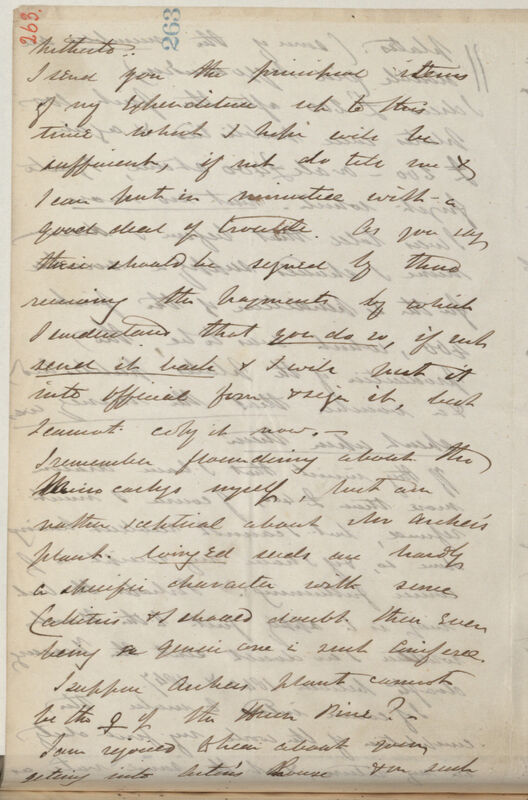 263.
263
hitherto.
I send you the principal items
of my Expenditure up to this
time which I hope will be
sufficient, if not do tell me &
I can put in minutiæ with a
good deal of trouble. As you say
these should be signed by those
receiving the payments by which
I understand that you do so, if not
send it back & I will put it
into official form & sign it, but
I cannot copy it now. —
I remember floundering about the
Microcachys myself, but am
rather sceptical about Mr Archer's
plant. winged seeds are hardly
a specific character with some
Callitris & I should doubt their Even
being a generic one in such Coniferæ.
I suppose Archers plant cannot
be the ♀ of the Huon Pine? —
I am rejoiced to hear about your
getting into house & on such